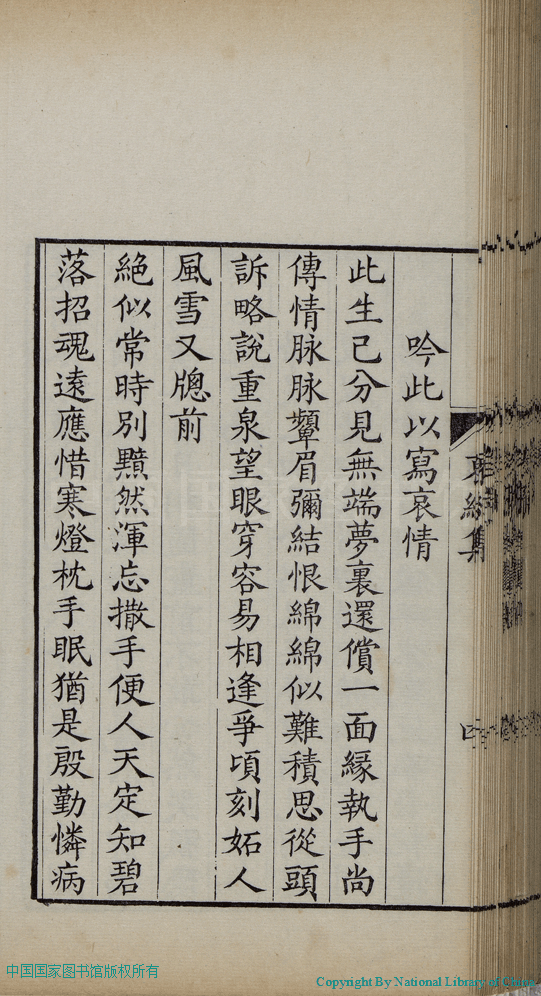 吟此以寫哀情
此生已分見無端夢裏還償一面緣執手尚
傳情脉脉顰眉彌結恨綿綿似難積思從頭
訴略說重泉望眼穿容易相逢爭頃刻妬人
風雪又牕前
絶似常時別黯然渾忘撒手便人天定知碧
落招魂遠應惜寒燈枕手眠猶是殷勤憐病
中国国家图书馆版权所有
Copyright By National Library of China